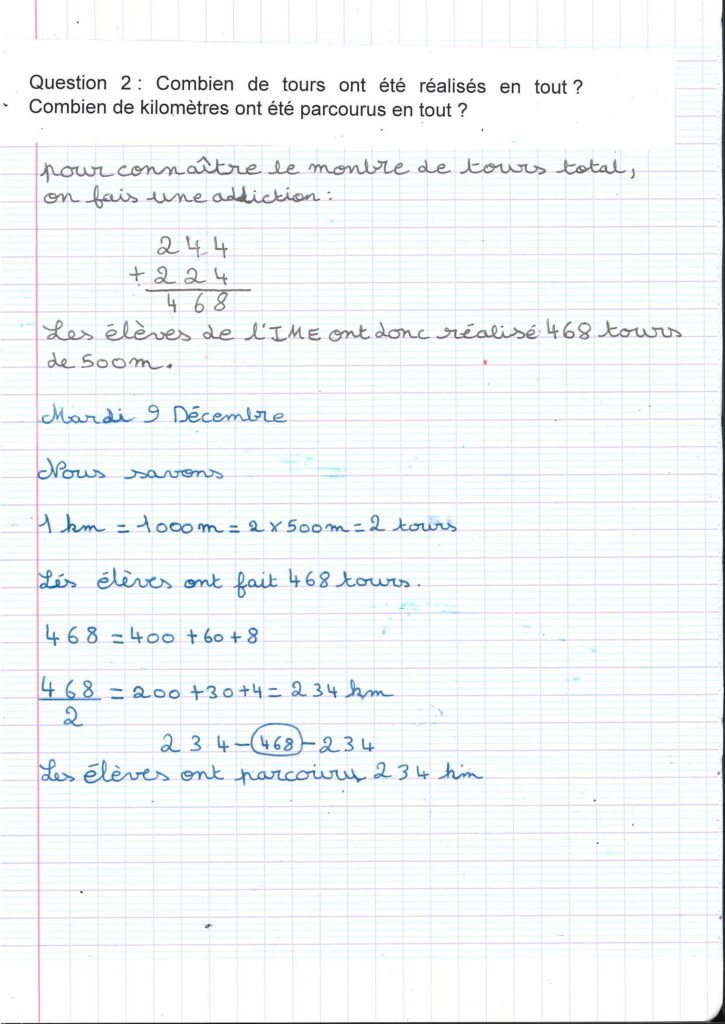 Question 2 : Combien de tours ont été réalisés en tout ?
Combien de kilomètres ont été parcourus en tout ?
pour connaître le monbre de tours total,
on fais une addiction :
244
+ 224
468
Les élèves de l'IME ont donc réalisé 468 tours
de 500m.
Mardi 9 Décembre
Nous savons
1 km = 1000m = 2 x 500m = 2 tours
Lés élèves ont fait 468 tours.
468 = 400 + 60 + 8
468 = 200 + 30 + 4 = 234 km
2
234 - 468 - 234
Les élèves ont parcouru 234 km